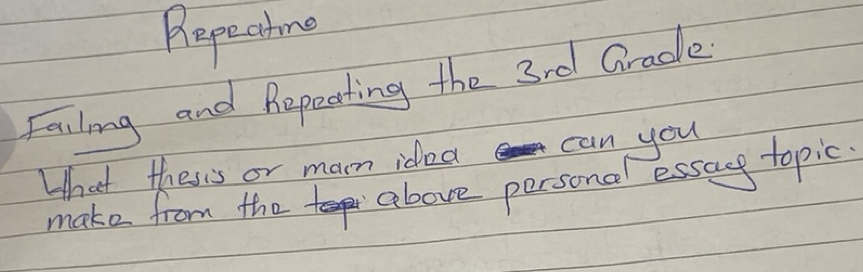 Repeatme
Failing and Repeating the 3rd Grade.
What thesis or main idea can you
make from the above personal essay topic.